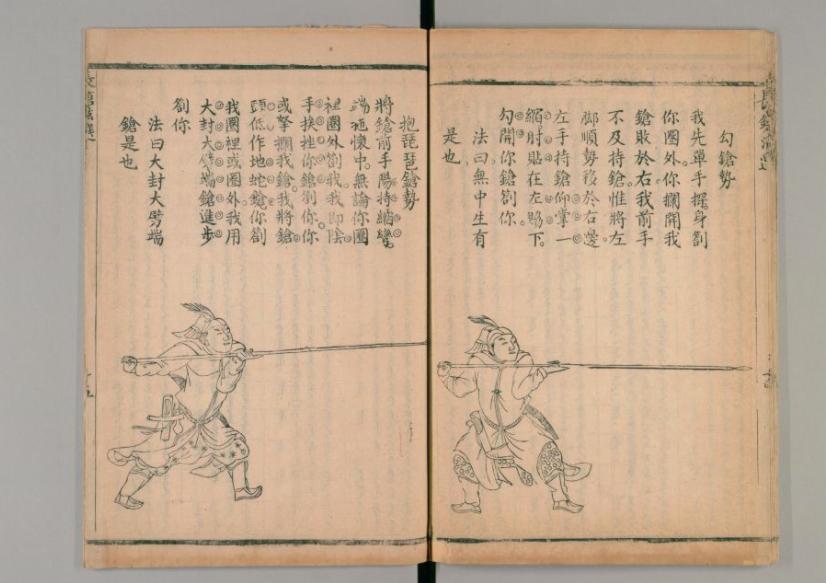 勾鎗勢
我先單手探身劄
你圈外你攔開我
鎗敗於右我前手
不及持鎗惟將左
脚順勢移於右邊
左手持鎗仰掌一
縮肘貼在左脇下。
勾開你鎗劄你
法曰無中生有
是也
抱琵琶鎗勢
將鎗前手陽持縮
拖懷中。無論你圈
裡圈外劄我。我即陰
手挨你鎗劄你你
或拏攔我鎗。我將鎗
頭低作地蛇鎗你劄
我圈裡或圈外。我用
大封大劈端鎗進步
劄你
法曰大封大劈端
鎗是也